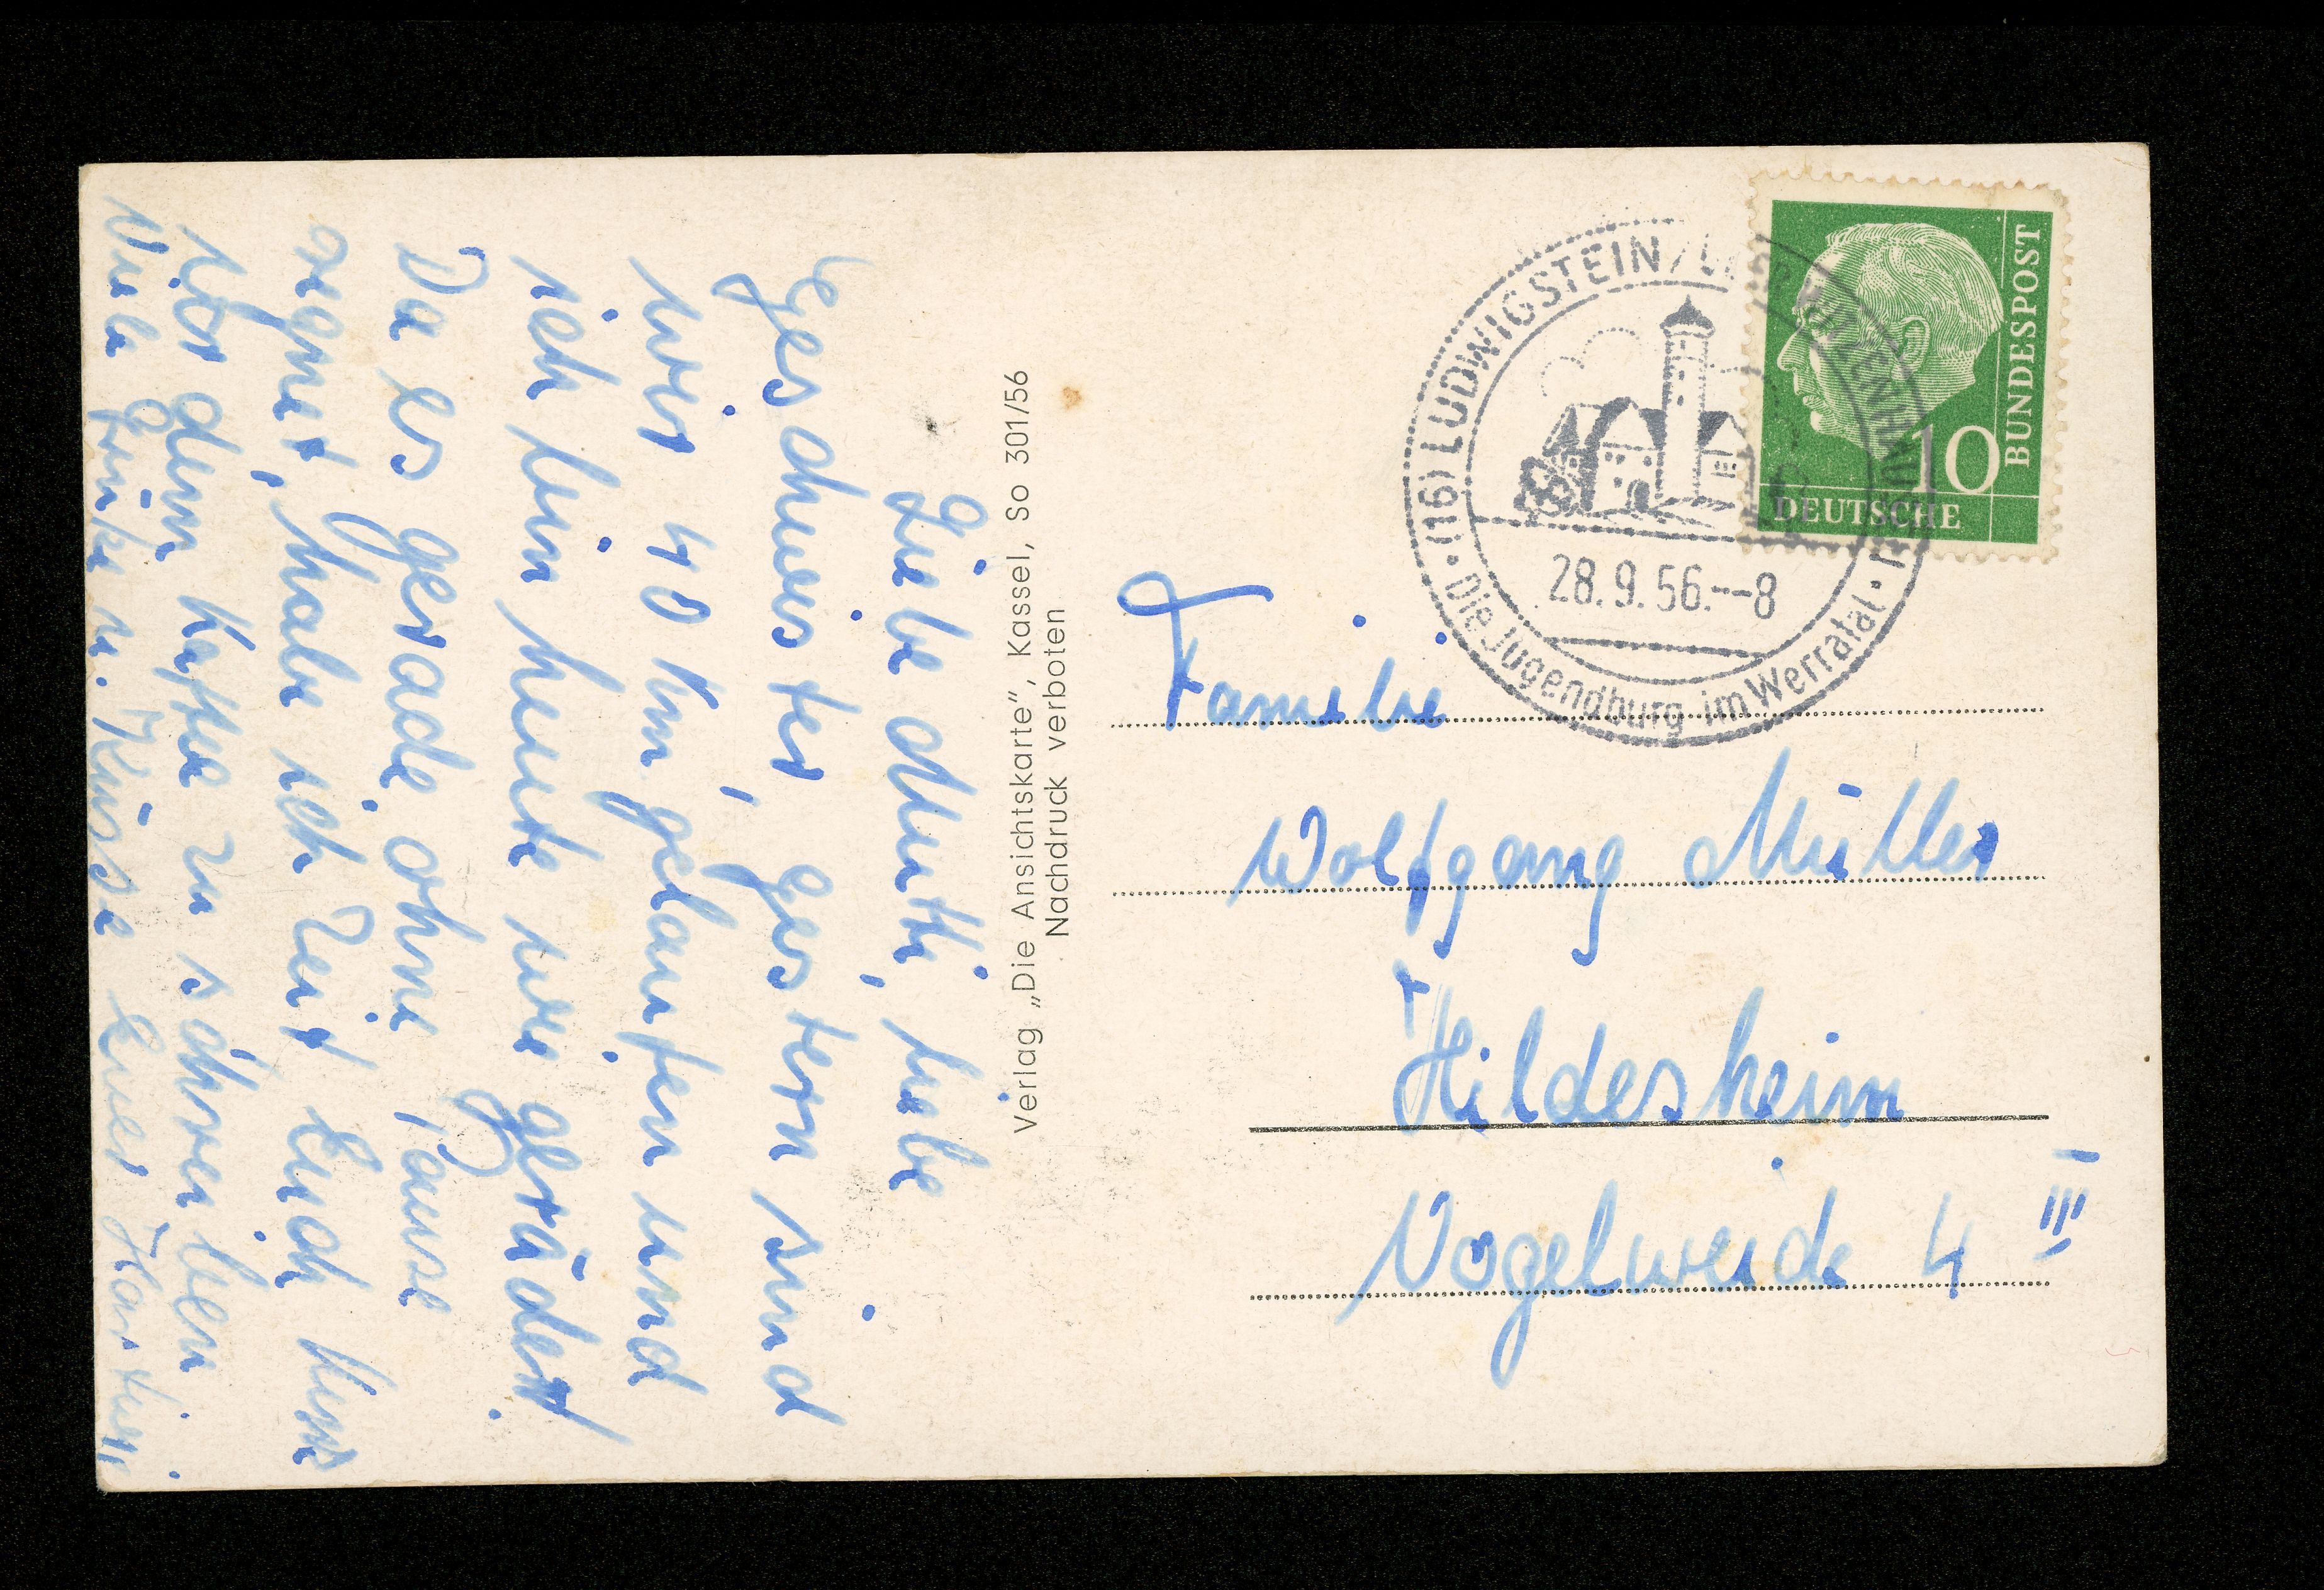 Liebe Mutti, liebe
Geschwister! Gestern sind
wir 40 km gelaufen und
ich bin heute wie gerädert.
Da es gerade ohne Pause
regnet, habe ich Zeit Euch
vor dem Kaffee zu schreiben.
Viele Grüße u. Küsse Euer
Verlag „Die Ansichtskarte", Kassel, So 301/56
Nachdruck verboten
(16) LUDWIGSTEIN/
WITZENHAUSEN
28.9.56.--8
Die Jugendburg im Werratal
10
DEUTSCHE
BUNDESPOST
Familie
Wolfgang Müller
Hildesheim
Vogelweide 4 III